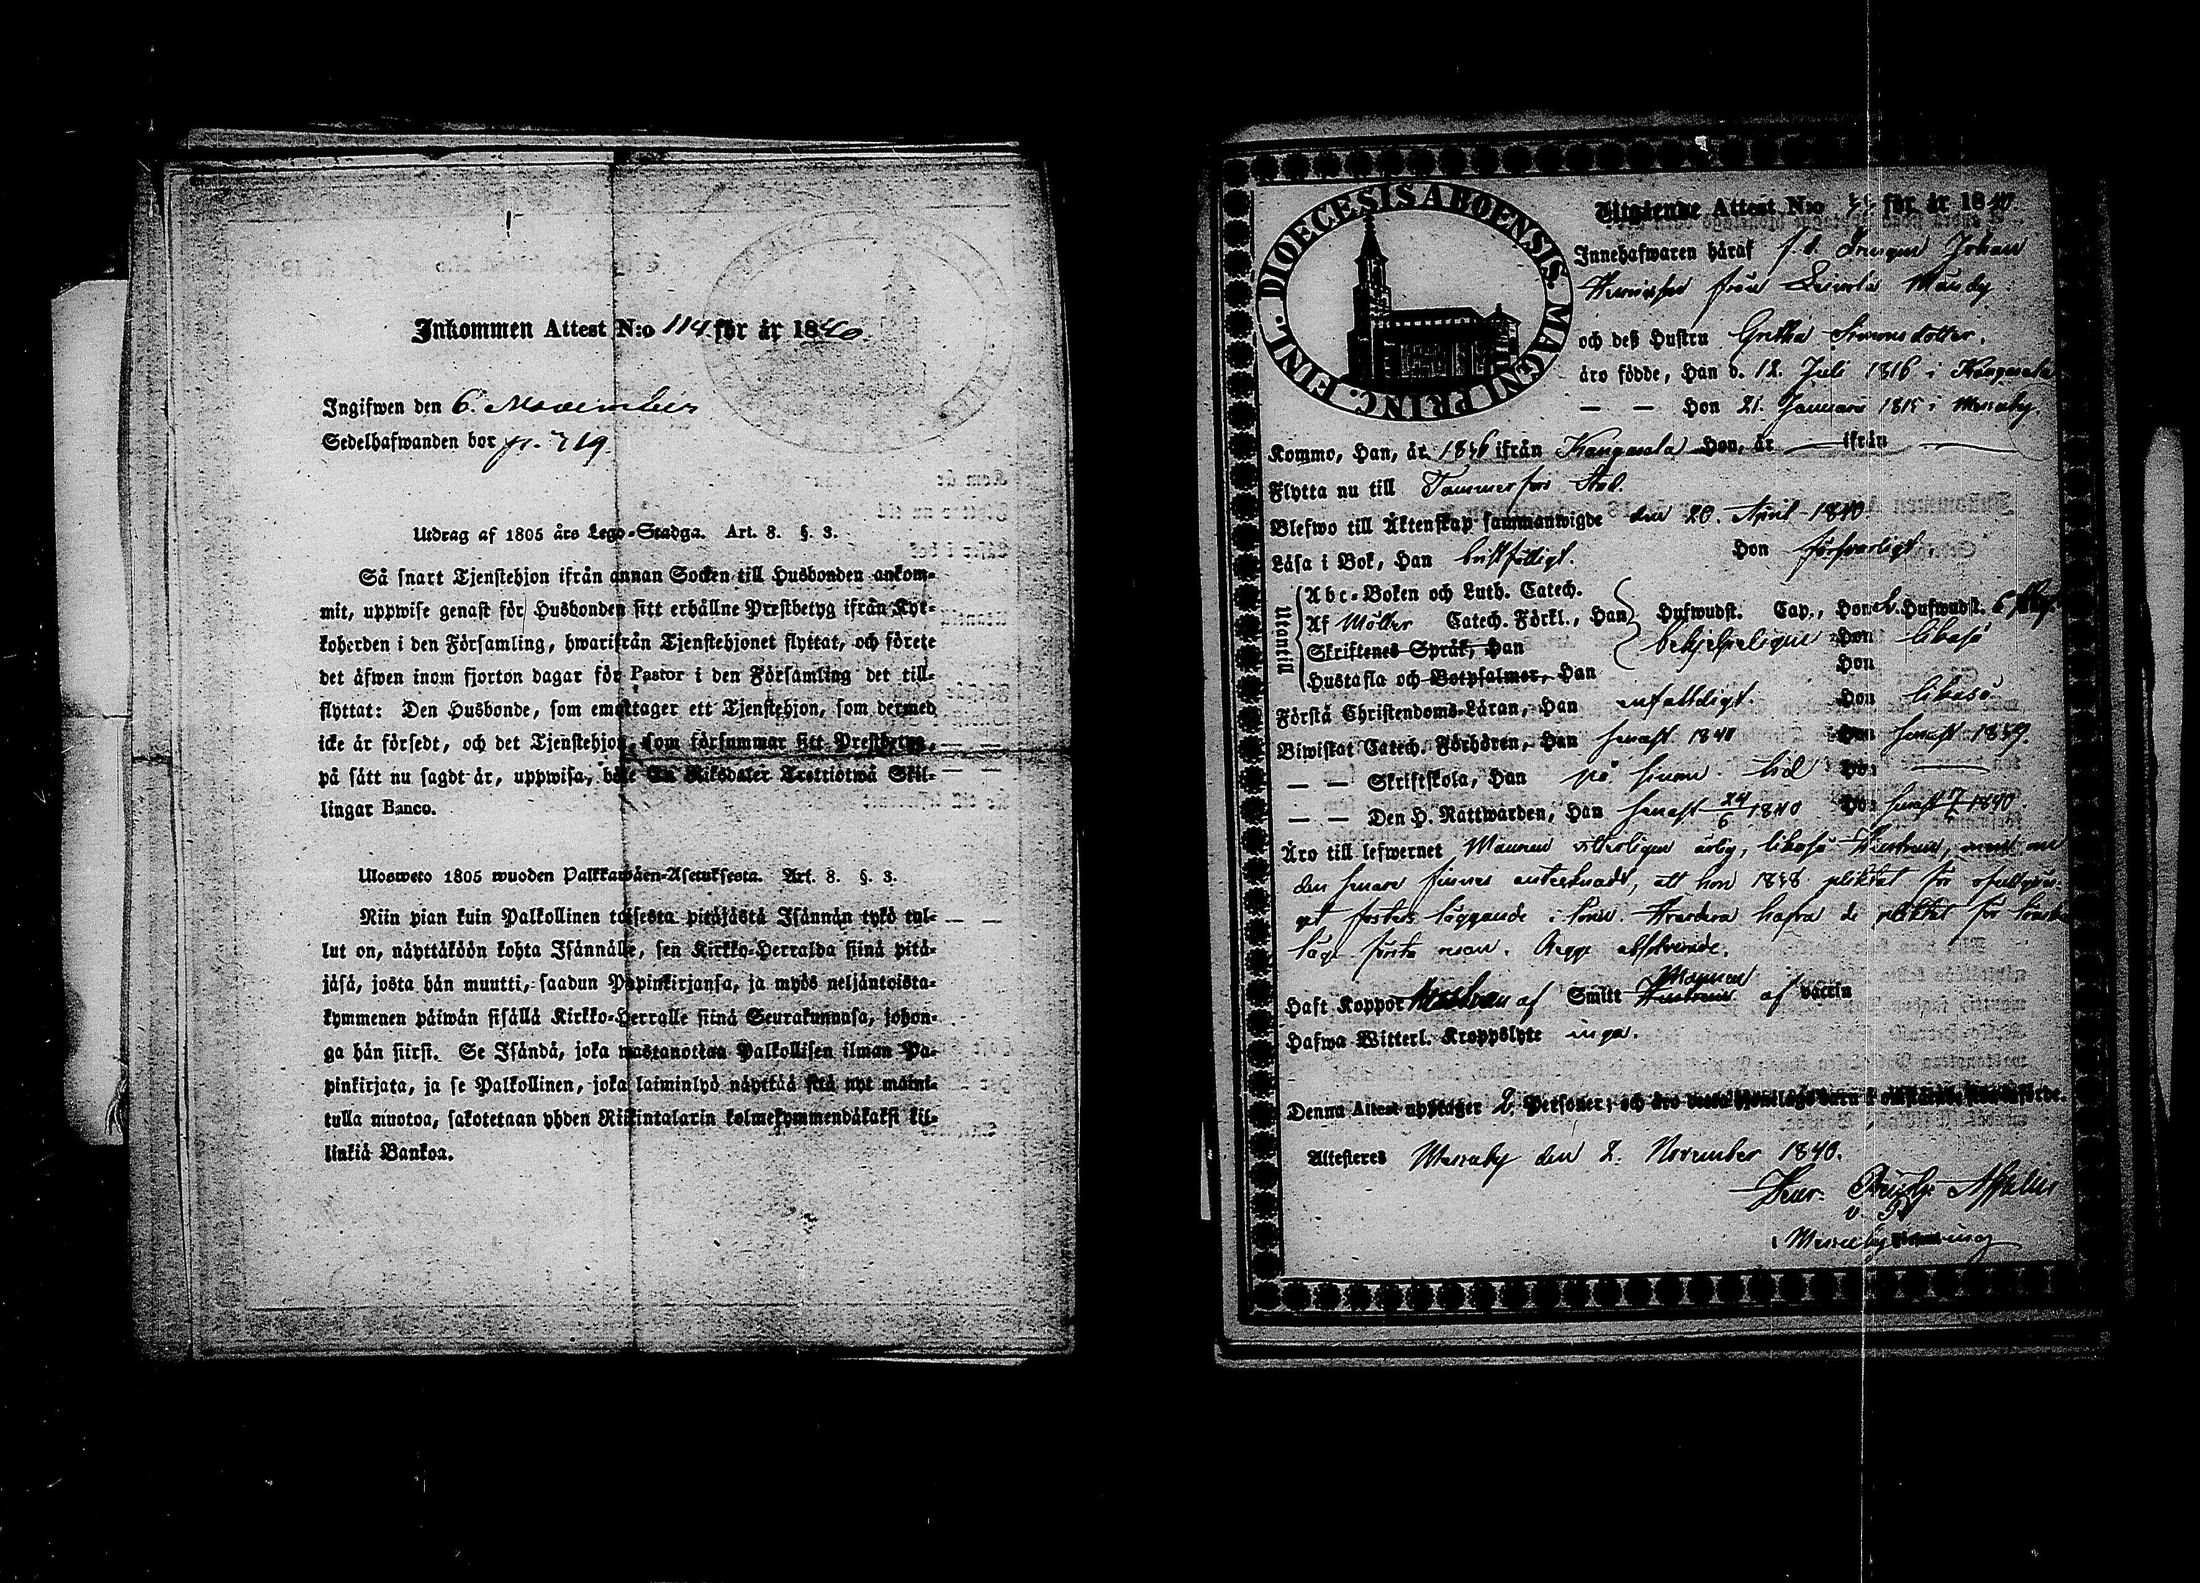 Inkommen Attest N:o 114 för år 1840.
Ingifwen den 6. November
Sedelhafwanden bor p. 219.
Utdrag af 1805 års Lego-Stadga. Art. 8. §. 3.
Så snart Tjenstehjon ifrån annan Socken till Husbonden ankom-
mit, uppwise genast för Husbonden sitt erhållne Prestbetyg ifrån Kyr-
koherden i den Församling, hwarifrån Tjenstehjonet flyttat, och förete
det äfwen inom fjorton dagar för Pastor i den Församling det till-
flyttat: Den Husbonde, som emottager ett Tjenstehjon, som dermed
icke är försedt, och det Tjenstehjon, som försummar sitt Prestbetyg,
på sätt nu sagdt är, uppwisa, böte En Riksdaler Trettiotwå Skil-
lingar Banco.
Ulosweto 1805 wuoden Palkkawäen-Asetuksesta. Art. 8. §. 3.
Niin pian kuin Palkollinen toisesta pitäjästä Isännän tykö tul-
lut on, näyttäköön kohta Isännälle, sen Kirkko-Herralda siinä pitä-
jäsä, josta hän muutti, saadun Papinkirjansa, ja myös neljäntoista-
kymmenen päiwän sisällä Kirkko-Herralle siinä Seurakunnasa, johon-
ga hän siirsi. Se Isändä, joka wastanottaa Palkollisen ilman Pa-
pinkirjata, ja se Palkollinen, joka laiminlyö näyttää sitä nyt maini-
tulla muotoa, sakotetaan yhden Riikintalarin kolmekymmendäkaksi kil-
linkiä Bankoa.
DIOECESIS ABOENSIS. MAGNI PRINC. FINL.
Utgående Attest N:o för år 1840
Innehafwaren häraf f. d. Drengen Johan
från Mäuby
och deß Hustru Gretha Simonsdotter.
äro födde, Han d. 12. Juli 1816 i Kangasala
— — Hon 21. Januari 1815 i Messuby.
Kommo, Han, år 1836 ifrån Kangasala Hon, år — ifrån —
Flytta nu till Tammerfors Stad.
Blefwo till Äktenskap sammanwigde den 20. April 1840
Läsa i Bok, Han bristfälligt. Hon försvarligt.
Utantill
Abc-Boken och Luth. Catech.
Af Möller Catech. Förkl., Han Hufwudst. Cap., Hon Hufwudst.
Skriftenes Språk, Han behjelpeligen Hon likaså
Hustafla och Botpsalmer, Han Hon
Förstå Christendoms-Läran, Han enfaldigt. Hon likaså
Biwistat Catech. Förhören, Han senast 1840 Hon senast 1839.
— — Skriftskola, Han på sinom tid Hon —
— — Den H. Nattwarden, Han senast 24/6 1840 Hon senast 1840.
Äro till lefwernet Mannen witterligen ärlig, likaså Hustrun, men om
den senare finnes antecknadt, att hon 1838 pliktat för
fosters läggande i lönn. hafva de pliktat för lönska
läge första resan. Begge absolverade.
Haft Koppor af Smitt Mannen Hustrun af vaccin
Hafwa Witterl. Kroppslyte inga.
Denna Attest upptager 2 Personer;
Attesteres Messuby den 2. November 1840.
v. P.
i Messuby